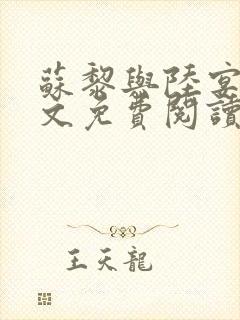 蘇黎與陸宴
文免費閱讀
王天龍